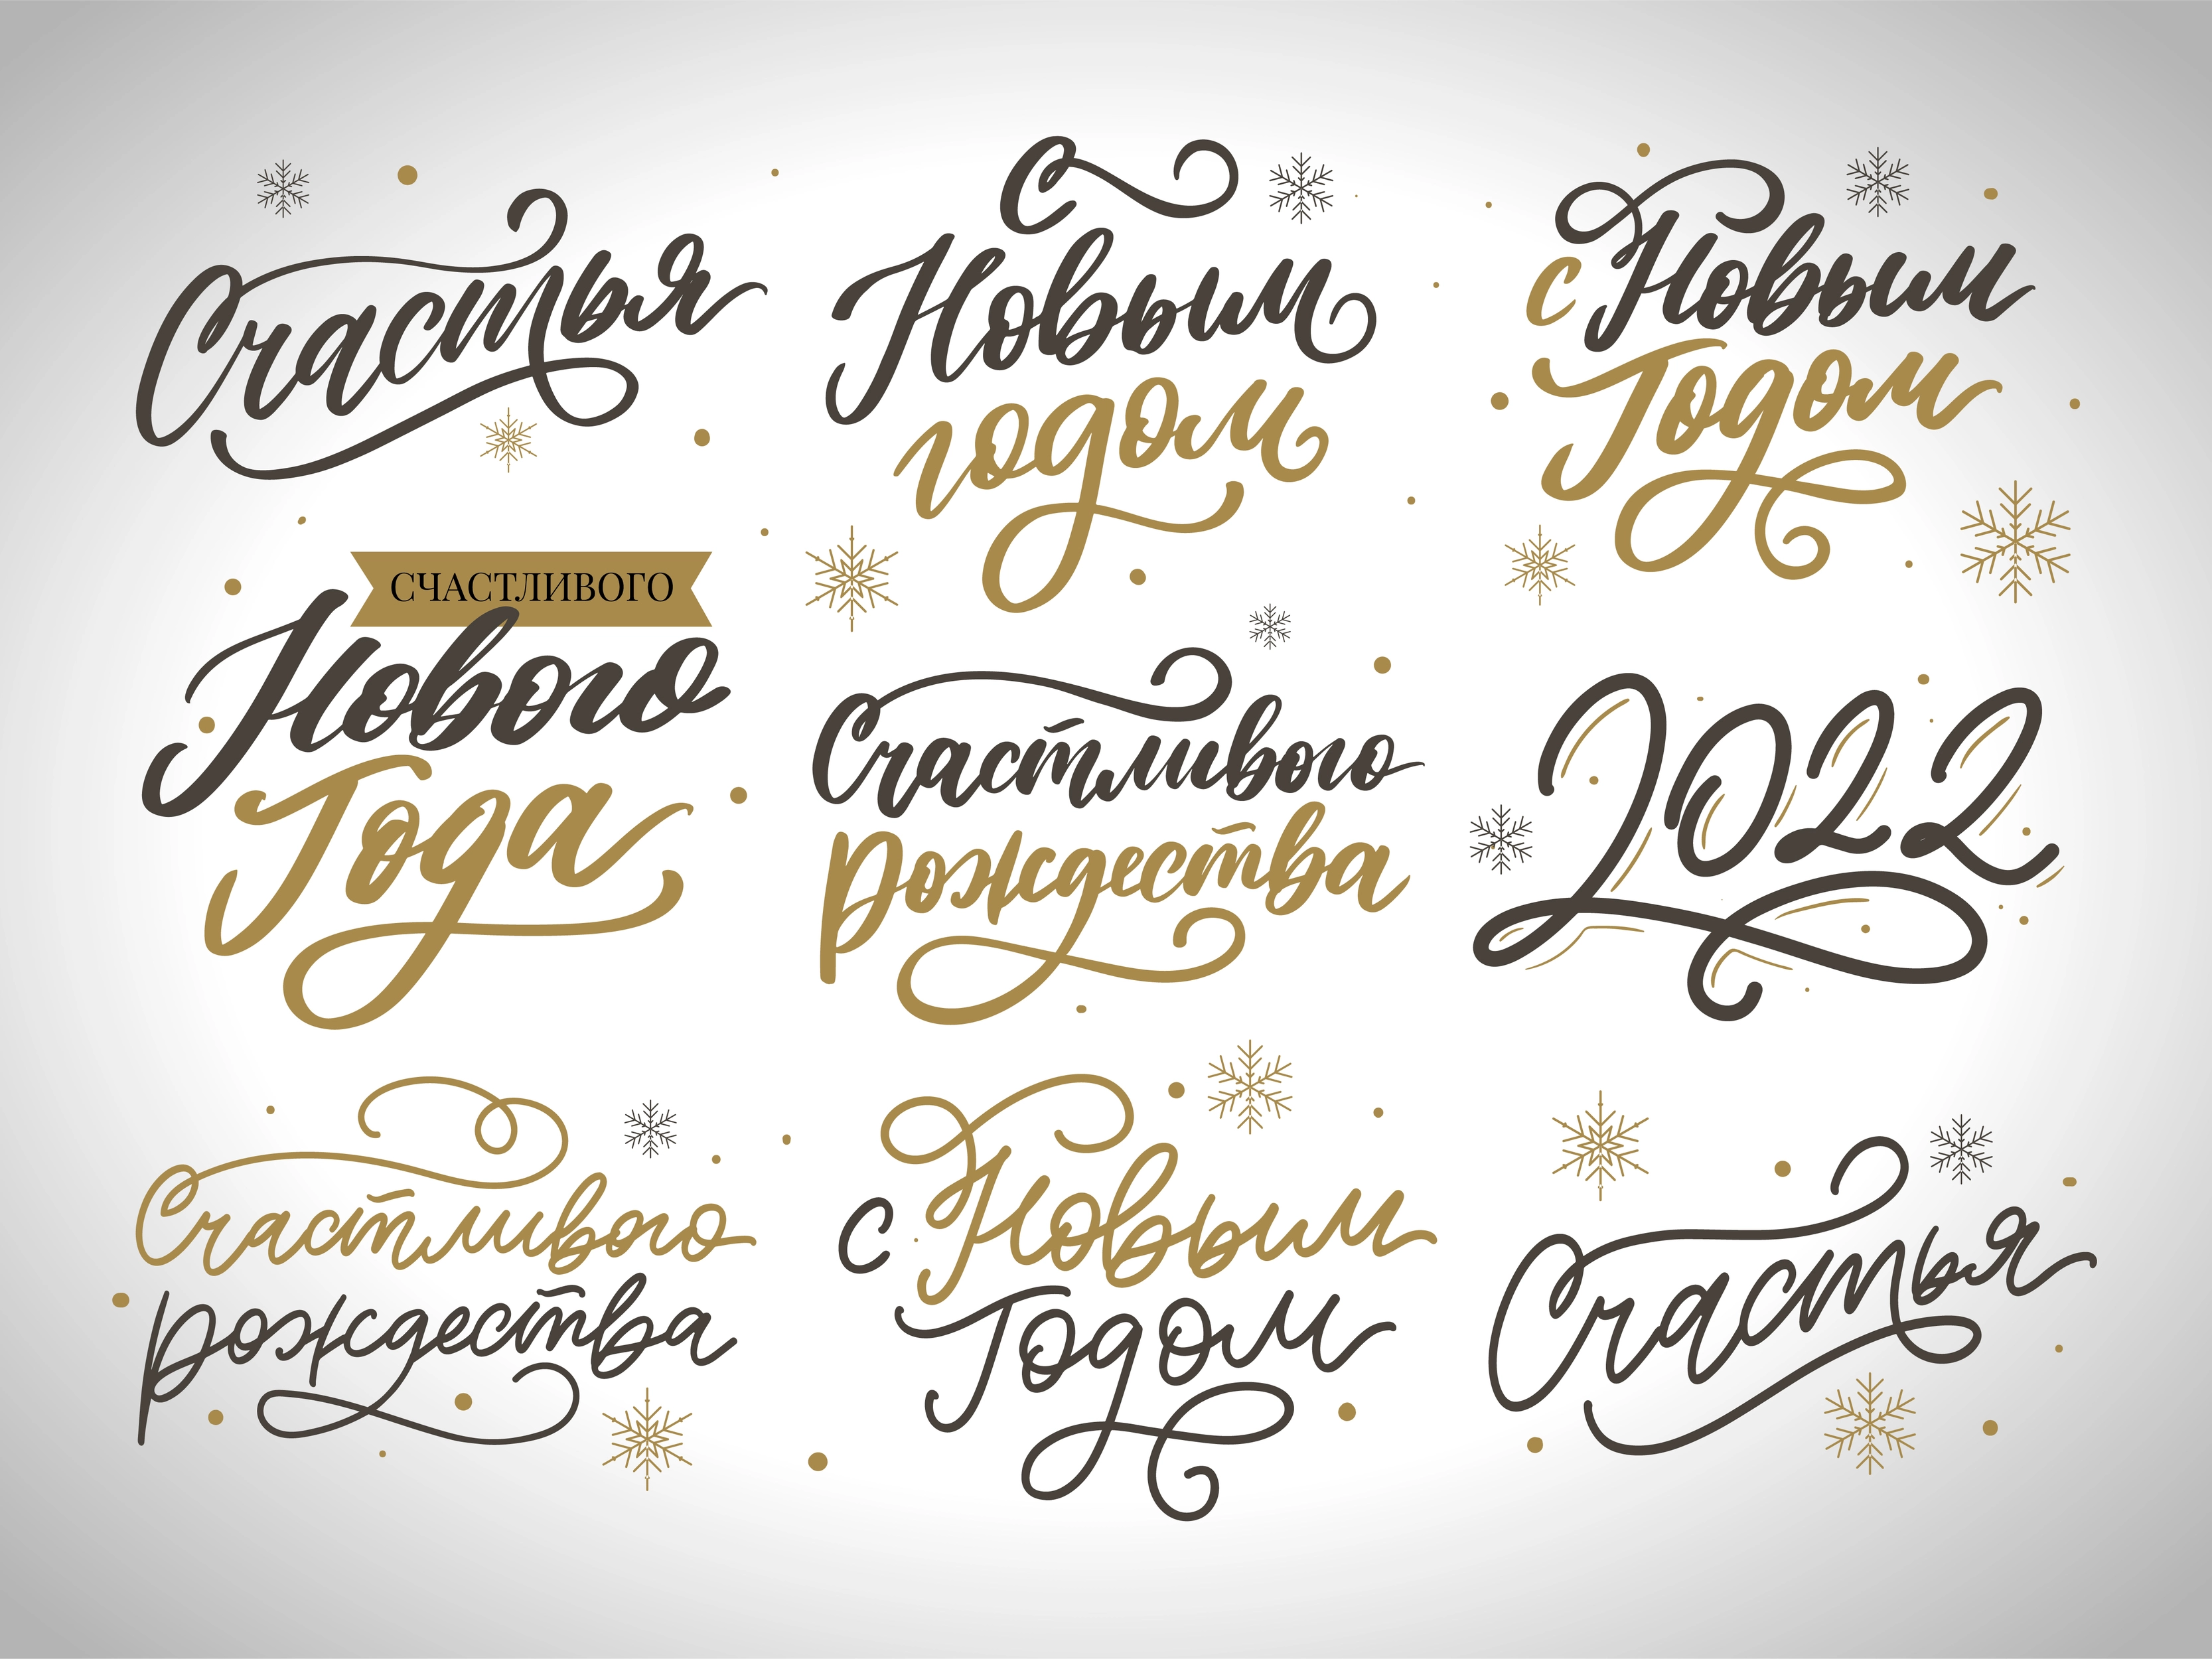 Счастья
С
Новым
годом
с Новым
Годом
СЧАСТЛИВОГО
Нового
Года
Счастливого
рождества
2022
Счастливого
рождества
с Новым
Годом
Счастья